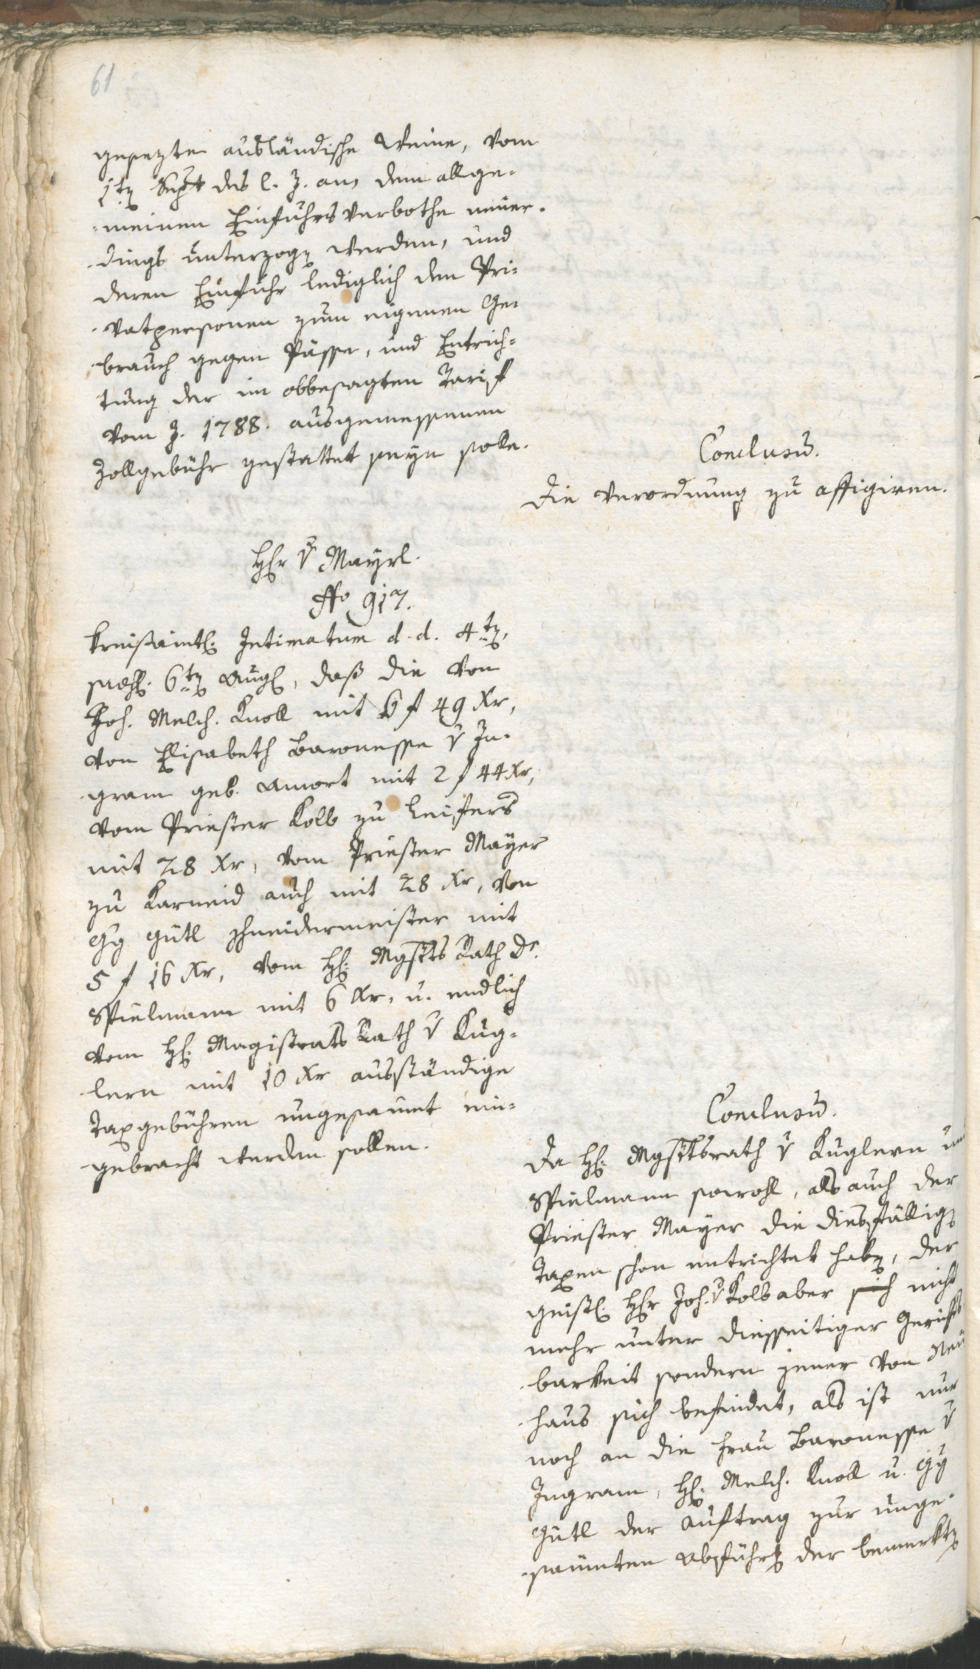 61
gesezte ausländische Weine, vom
1tn Sept des l. J. an, dem allge-
meinen Einfuhrsverbothe neuer-
dings unterzogn werden, und
deren Einfuhr lediglich den Pri-
vatpersonen zum eigenen Ge-
brauch gegen Pässe, und Entrich-
tung der im obbesagten Tariff
vom J. 1788. ausgemessenen
Zollgebühr gestattet seyn solle.
Conclusū.
Die Verordnung zu affigiren.
Hr v Mayrl.
No 917.
Kreisämtl. Intimatum d. d. 4tn,
6tn Aug, daß die von
Joh. Melch. Knoll mit 6 f 49 Xr,
von Elisabeth Baronesse v In-
gram geb. Amort mit 2 f 44 Xr,
vom Priester Kolb zu Leifers
mit 28 Xr, vom Priester Mayer
zu Karneid auch mit 28 Xr, von
Gg Gütl Schneidermeister mit
5 f 16 Xr, vom H. Mgstts Rath Dr.
Spielmann mit 6 Xr, u. endlich
vom H. Magistrats Rath v Kug-
lern mit 10 Xr ausständige
Taxgebühren ungesäumt ein-
gebracht werden sollen.
Conclusū.
Da H. Mgsttsrath v Kuglern
Spielmann sowohl, als auch der
Priester Mayer die diesfällign
Taxen schon entrichtet habn, der
geistl. Hr Joh. v Kolb aber nicht
mehr unter diesseitiger Gerichts
barkeit sondern jener von Neu
haus sich befindet, als ist nur
noch an die Frau Baronesse v
Ingram, H. Melch. Knoll u. Gg
Gütl der Auftrag zur unge-
säumten Abführg der bemerktn